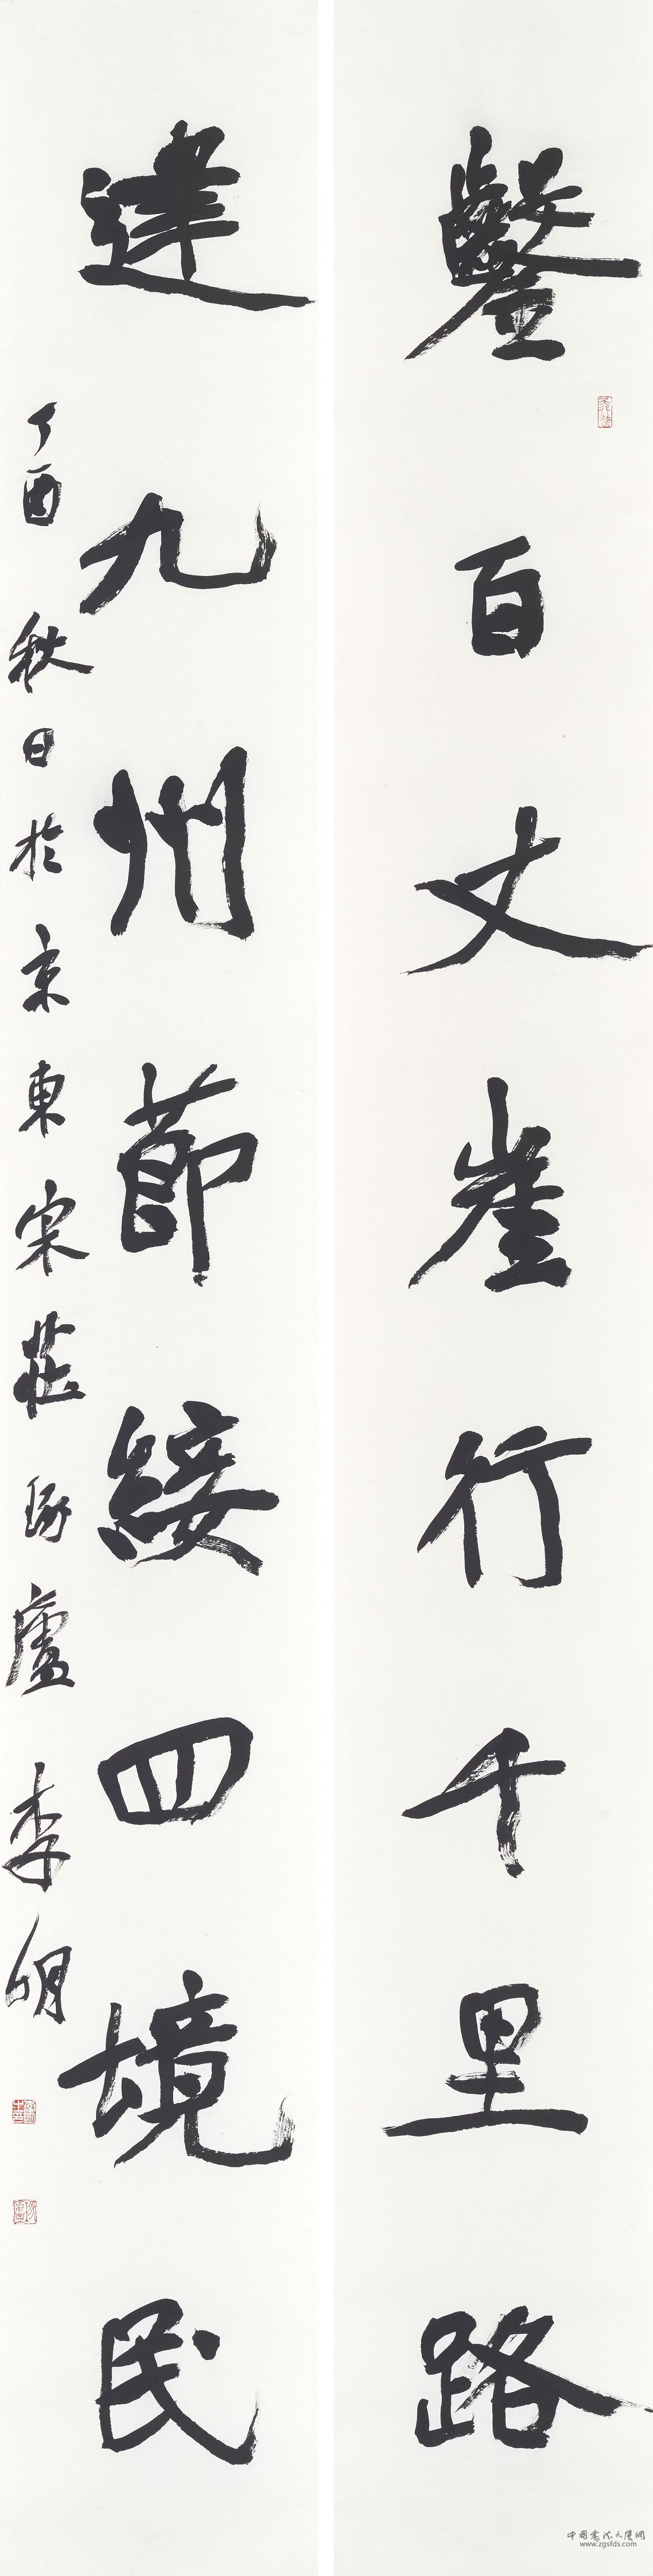 鑿百丈崖行千里路
達九州節綏四境民
丁酉秋日於京東宋莊琢廬李明
中国書法大厦網
www.zgsfds.com